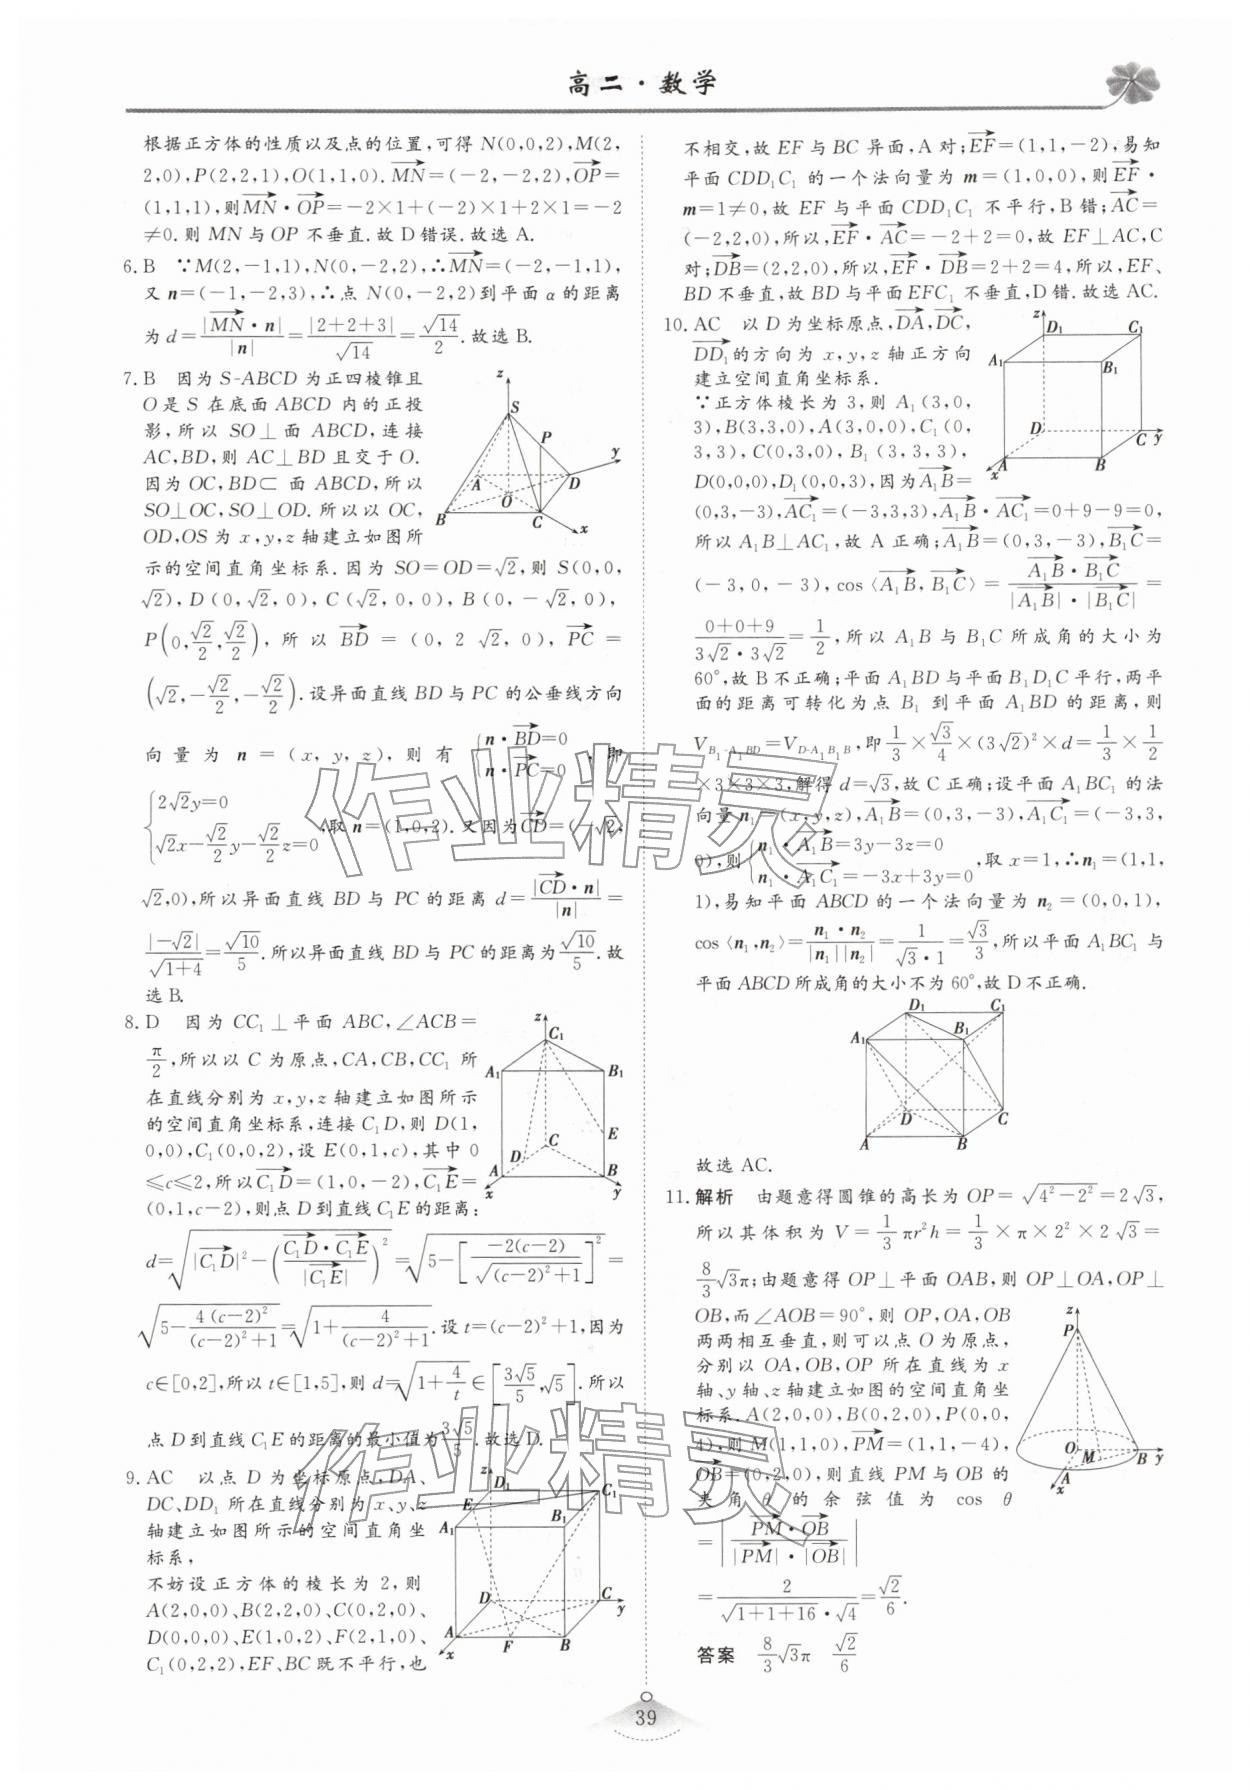 高二·数学
根据正方体的性质以及点的位置,可得 N(0,0,2),M(2,
2,0),P(2,2,1),O(1,1,0).$\overrightarrow{MN}$=(-2,-2,2),$\overrightarrow{OP}$=
(1,1,1),则$\overrightarrow{MN}$·$\overrightarrow{OP}$=-2×1+(-2)×1+2×1=-2
≠0.则 MN 与 OP 不垂直.故 D 错误.故选 A.
6. B ∵M(2,-1,1),N(0,-2,2),∴$\overrightarrow{MN}$=(-2,-1,1),
又 n=(-1,-2,3),∴点 N(0,-2,2)到平面 α 的距离
为 d=$\frac{|\overrightarrow{MN}·n|}{|n|}$=$\frac{|2+2+3|}{\sqrt{14}}$=$\frac{\sqrt{14}}{2}$.故选 B.
7. B 因为 S-ABCD 为正四棱锥且
O 是 S 在底面 ABCD 内的正投
影,所以 SO⊥面 ABCD,连接
AC,BD,则 AC⊥BD 且交于 O.
因为 OC,BD⊂ 面 ABCD,所以
SO⊥OC,SO⊥OD.所以以 OC,
OD,OS 为 x,y,z 轴建立如图所
z
S
P
y
A
D
O
B
C
x
示的空间直角坐标系.因为 SO=OD=$\sqrt{2}$,则 S(0,0,
$\sqrt{2}$),D(0,$\sqrt{2}$,0),C($\sqrt{2}$,0,0),B(0,-$\sqrt{2}$,0),
P$\left(0,\frac{\sqrt{2}}{2},\frac{\sqrt{2}}{2}\right)$,所以 $\overrightarrow{BD}$=(0,2$\sqrt{2}$,0),$\overrightarrow{PC}$=
$\left(\sqrt{2},-\frac{\sqrt{2}}{2},-\frac{\sqrt{2}}{2}\right)$.设异面直线 BD 与 PC 的公垂线方向
向量为 n=(x,y,z),则有$\begin{cases}n·\overrightarrow{BD}=0\\n·\overrightarrow{PC}=0\end{cases}$,即
$\begin{cases}2\sqrt{2}y=0\\\sqrt{2}x-\frac{\sqrt{2}}{2}y-\frac{\sqrt{2}}{2}z=0\end{cases}$,取 n=(1,0,2).又因为$\overrightarrow{CD}$=(-$\sqrt{2}$,
$\sqrt{2}$,0),所以异面直线 BD 与 PC 的距离 d=$\frac{|\overrightarrow{CD}·n|}{|n|}$=
$\frac{|-\sqrt{2}|}{\sqrt{1+4}}$=$\frac{\sqrt{10}}{5}$.所以异面直线 BD 与 PC 的距离为$\frac{\sqrt{10}}{5}$.故
选 B.
8. D 因为 CC₁⊥平面 ABC,∠ACB=
$\frac{π}{2}$,所以以 C 为原点,CA,CB,CC₁ 所
在直线分别为 x,y,z 轴建立如图所示
的空间直角坐标系,连接 C₁D,则 D(1,
0,0),C₁(0,0,2),设 E(0,1,c),其中 0
≤c≤2,所以$\overrightarrow{C_1D}$=(1,0,-2),$\overrightarrow{C_1E}$=
(0,1,c-2),则点 D 到直线 C₁E 的距离:
z
C₁
A₁
B₁
E
C
D
A
B
x
y
d=$\sqrt{|\overrightarrow{C_1D}|^2-\left(\frac{\overrightarrow{C_1D}·\overrightarrow{C_1E}}{|\overrightarrow{C_1E}|}\right)^2}$=$\sqrt{5-\left[\frac{-2(c-2)}{\sqrt{(c-2)^2+1}}\right]^2}$=
$\sqrt{5-\frac{4(c-2)^2}{(c-2)^2+1}}$=$\sqrt{1+\frac{4}{(c-2)^2+1}}$.设 t=(c-2)²+1,因为
c∈[0,2],所以 t∈[1,5],则 d=$\sqrt{1+\frac{4}{t}}$∈$\left[\frac{3\sqrt{5}}{5},\sqrt{5}\right]$.所以
点 D 到直线 C₁E 的距离的最小值为$\frac{3\sqrt{5}}{5}$.故选 D.
9. AC 以点 D 为坐标原点,DA、
DC、DD₁ 所在直线分别为 x、y、z
轴建立如图所示的空间直角坐
标系,
不妨设正方体的棱长为 2,则
A(2,0,0)、B(2,2,0)、C(0,2,0)、
D(0,0,0)、E(1,0,2)、F(2,1,0)、
C₁(0,2,2),EF、BC 既不平行,也
z
D₁
C₁
E
A₁
B₁
D
C
y
A
F
B
x
不相交,故 EF 与 BC 异面,A 对;$\overrightarrow{EF}$=(1,1,-2),易知
平面 CDD₁C₁ 的一个法向量为 m=(1,0,0),则$\overrightarrow{EF}$·
m=1≠0,故 EF 与平面 CDD₁C₁ 不平行,B 错;$\overrightarrow{AC}$=
(-2,2,0),所以,$\overrightarrow{EF}$·$\overrightarrow{AC}$=-2+2=0,故 EF⊥AC,C
对;$\overrightarrow{DB}$=(2,2,0),所以,$\overrightarrow{EF}$·$\overrightarrow{DB}$=2+2=4,所以,EF、
BD 不垂直,故 BD 与平面EFC₁ 不垂直,D 错.故选 AC.
10. AC 以 D 为坐标原点,$\overrightarrow{DA}$,$\overrightarrow{DC}$,
$\overrightarrow{DD_1}$的方向为 x,y,z 轴正方向
建立空间直角坐标系.
∵正方体棱长为 3,则 A₁(3,0,
3),B(3,3,0),A(3,0,0),C₁(0,
3,3),C(0,3,0),B₁(3,3,3),
D(0,0,0),D₁(0,0,3),因为$\overrightarrow{A_1B}$=
z
D₁
C₁
A₁
B₁
D
C
y
A
B
x
(0,3,-3),$\overrightarrow{AC_1}$=(-3,3,3),$\overrightarrow{A_1B}$·$\overrightarrow{AC_1}$=0+9-9=0,
所以 A₁B⊥AC₁,故 A 正确;$\overrightarrow{A_1B}$=(0,3,-3),$\overrightarrow{B_1C}$=
(-3,0,-3),cos〈$\overrightarrow{A_1B}$,$\overrightarrow{B_1C}$〉=$\frac{\overrightarrow{A_1B}·\overrightarrow{B_1C}}{|\overrightarrow{A_1B}|·|\overrightarrow{B_1C}|}$=
$\frac{0+0+9}{3\sqrt{2}·3\sqrt{2}}$=$\frac{1}{2}$,所以 A₁B 与 B₁C 所成角的大小为
60°,故 B 不正确;平面 A₁BD 与平面 B₁D₁C 平行,两平
面的距离可转化为点 B₁ 到平面 A₁BD 的距离,则
$V_{B_1-A_1BD}$=$V_{D-A_1B_1B}$,即$\frac{1}{3}$×$\frac{\sqrt{3}}{4}$×(3$\sqrt{2}$)²×d=$\frac{1}{3}$×$\frac{1}{2}$
×3×3×3,解得 d=$\sqrt{3}$,故 C 正确;设平面 A₁BC₁ 的法
向量 n₁=(x,y,z),$\overrightarrow{A_1B}$=(0,3,-3),$\overrightarrow{A_1C_1}$=(-3,3,
0),则$\begin{cases}n_1·\overrightarrow{A_1B}=3y-3z=0\\n_1·\overrightarrow{A_1C_1}=-3x+3y=0\end{cases}$,取 x=1,∴n₁=(1,1,
1),易知平面 ABCD 的一个法向量为 n₂=(0,0,1),
cos〈n₁,n₂〉=$\frac{n_1·n_2}{|n_1||n_2|}$=$\frac{1}{\sqrt{3}·1}$=$\frac{\sqrt{3}}{3}$,所以平面 A₁BC₁ 与
平面 ABCD 所成角的大小不为 60°,故 D 不正确.
D₁
C₁
A₁
B₁
D
C
A
B
故选 AC.
11. 解析 由题意得圆锥的高长为 OP=$\sqrt{4^2-2^2}$=2$\sqrt{3}$,
所以其体积为 V=$\frac{1}{3}$πr²h=$\frac{1}{3}$×π×2²×2$\sqrt{3}$=
$\frac{8}{3}\sqrt{3}$π;由题意得 OP⊥平面 OAB,则 OP⊥OA,OP⊥
OB,而∠AOB=90°,则 OP,OA,OB
两两相互垂直,则可以点 O 为原点,
分别以 OA,OB,OP 所在直线为 x
轴、y 轴、z 轴建立如图的空间直角坐
标系.A(2,0,0),B(0,2,0),P(0,0,
4),则 M(1,1,0),$\overrightarrow{PM}$=(1,1,-4),
$\overrightarrow{OB}$=(0,2,0),则直线 PM 与 OB 的
夹角 θ 的余弦值为 cos θ
z
P
O
M
B
y
A
x
=$\left|\frac{\overrightarrow{PM}·\overrightarrow{OB}}{|\overrightarrow{PM}|·|\overrightarrow{OB}|}\right|$
=$\frac{2}{\sqrt{1+1+16}·\sqrt{4}}$=$\frac{\sqrt{2}}{6}$.
答案 $\frac{8}{3}\sqrt{3}$π $\frac{\sqrt{2}}{6}$
作业精灵
作业精灵
39